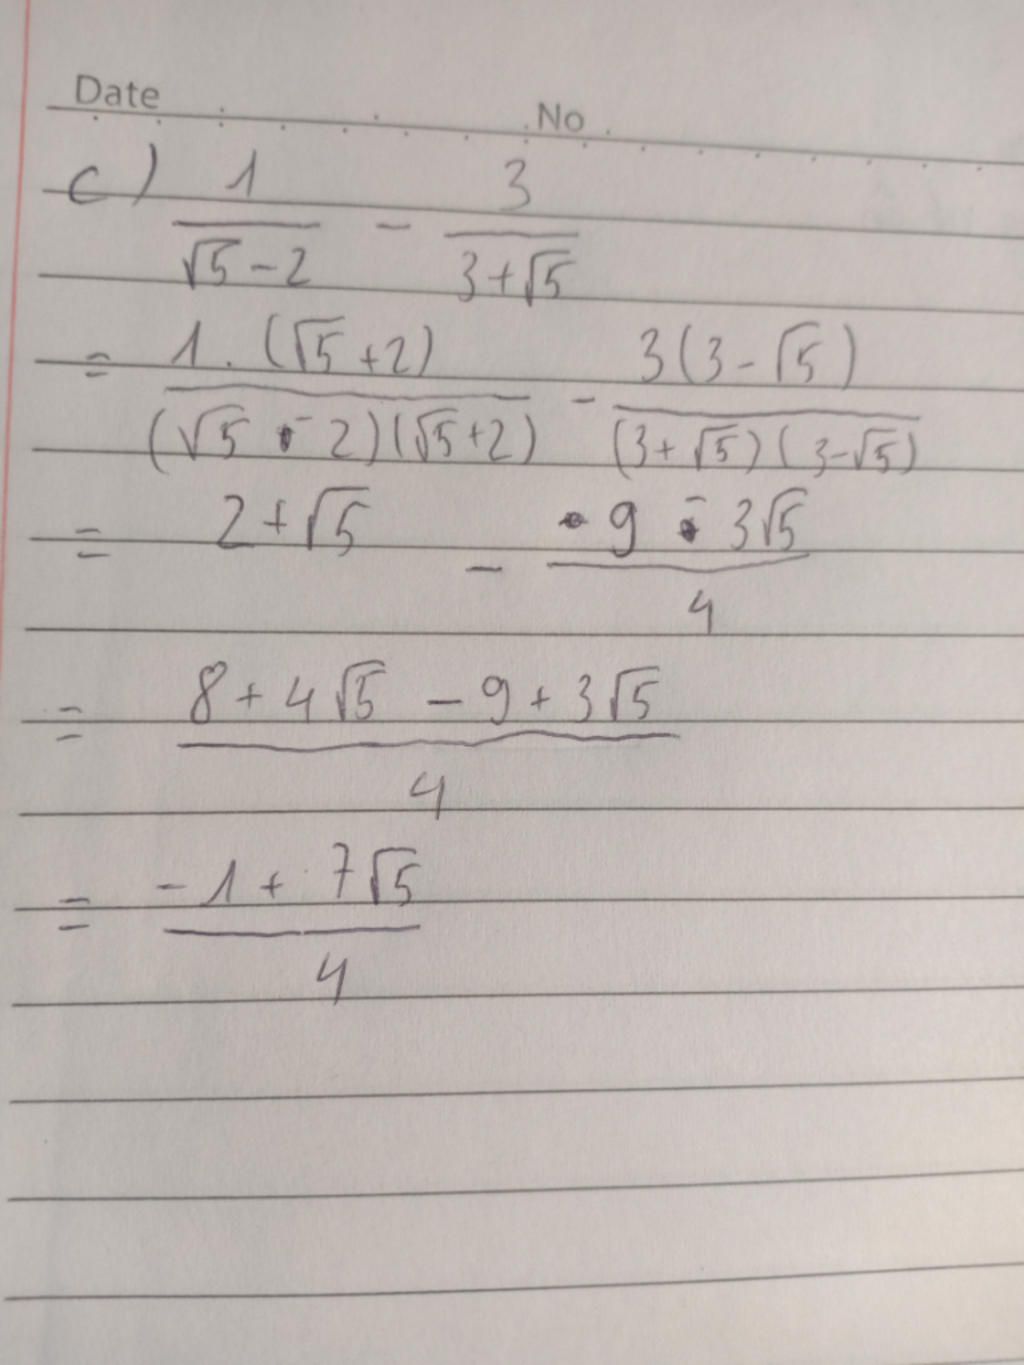 Date No
c) 1/(√5-2) - 3/(3+√5)
= 1.(√5+2)/((√5-2)(√5+2)) - 3(3-√5)/((3+√5)(3-√5))
= 2+√5 - (9-3√5)/4
= (8+4√5-9+3√5)/4
= (-1+7√5)/4